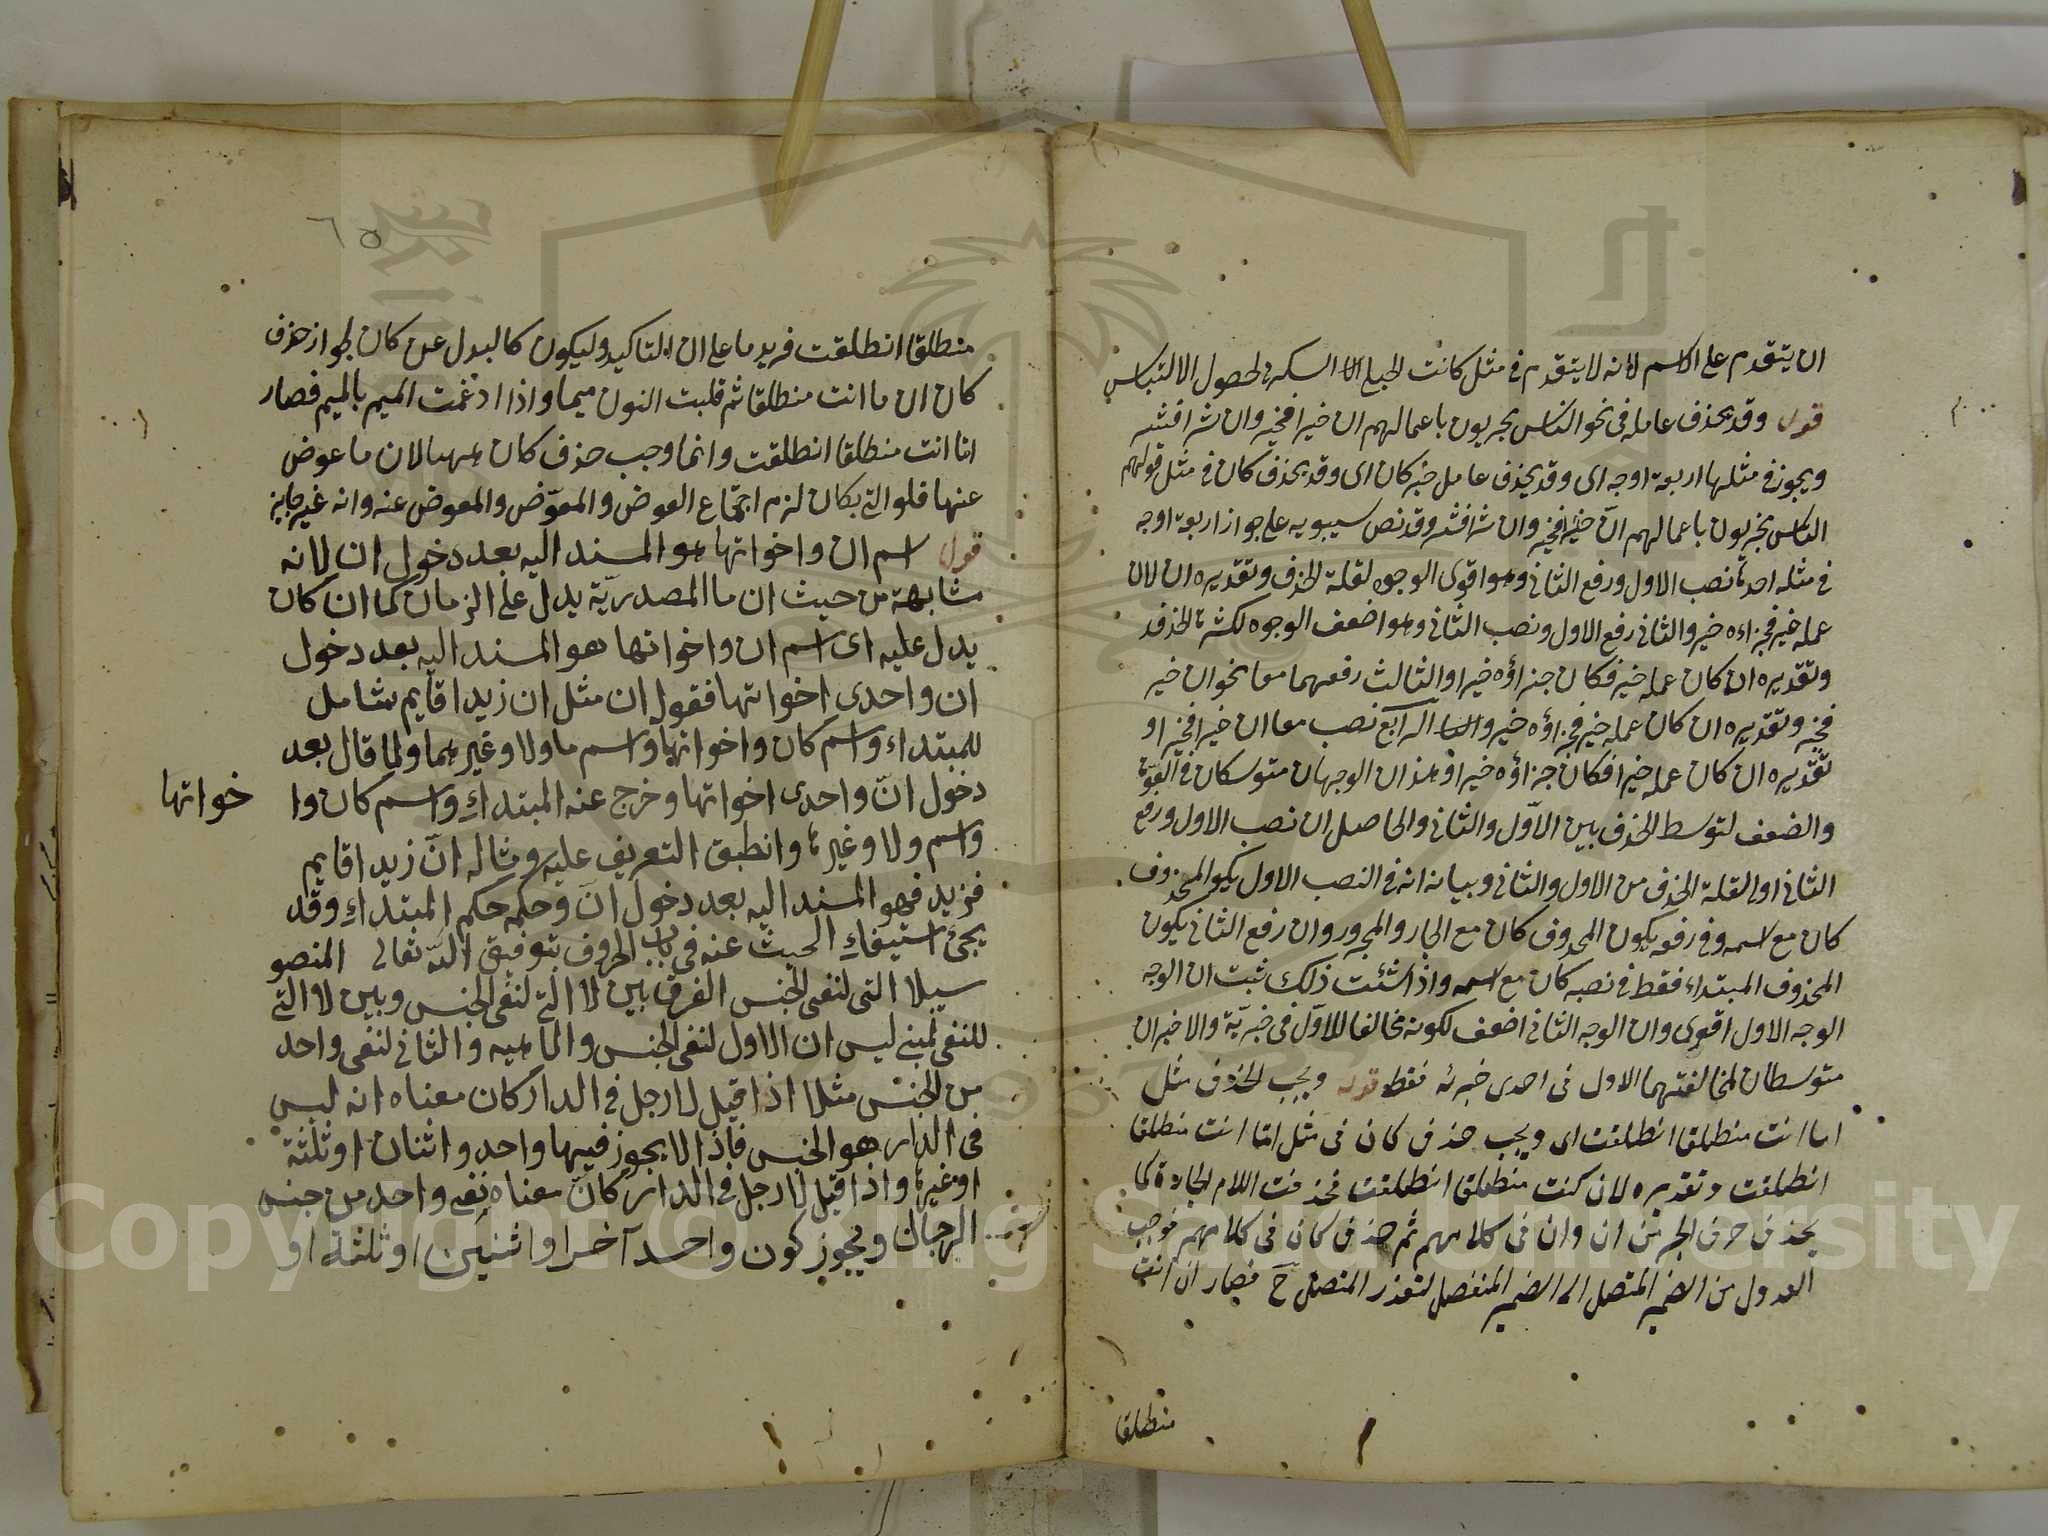 ان يتقدم على الاسم لانه لا يتقدم في مثل كانت الحبلى السكرى لحصول الالتباس
قوله وقد يحذف عامله في نحو الناس يجزيون باعمالهم ان خيرا فخير وان شرا فشر
ويجوز في مثلها اربعة اوجه اى وقد يحذف عامل خبر كان اى وقد يحذف كان في مثل قولهم
الناس مجزيون باعمالهم انّ خيرا فخير وان شرا فشر وقد نص سيبويه على جواز اربعة اوجه
في مثله احدها نصب الاول ورفع الثاني وهو اقوى الوجوه لقلة الحذف وتقديره ان كان
عمله خير فجزاءه خير والثاني رفع الاول ونصب الثاني وهو اضعف الوجوه لكثرة الحذف
وتقديره ان كان عمله خير فكان جزاؤه خيرا والثالث رفعهما معا نحو ان خير
فخير وتقديره ان كان عمله خير فجزاؤه خير والرابع نصب معا ان خيرا فخيرا و
تقديره ان كان عمله خيرا فكان جزاؤه خيرا وهذان الوجهان متوسكان في القوة
والضعف لتوسط الحذف بين الاوّل والثاني والحاصل ان نصب الاول ورفع
الثاني اولى لقلة الحذف من الاول والثاني وبيانه انه في النصب الاول يكو المحذوف
كان مع اسمه وفي رفعه يكون المحذوف كان مع الجار والمجرور وان رفع الثاني يكون
المحذوف المبتداء فقط في نصبه كان مع اسمه واذا شئت ذلك ثبت ان الوجه
الوجه الاول اقوى وان الوجه الثاني اضعف لكونه مخالفا للاوّل في خبريّة والاخيران
متوسطان لمخالفتهما الاول في احدى خبرئه فقط قوله ويجب الحذف مثل
اما انت منطلقا انطلقت اى ويجب حذف كان في مثل امّا انت منطلقا
انطلقت وتقديره لان كنت منطلقا انطلقت فحذفت اللام الجارة كما
يحذف حرف الجر من ان وان في كلامهم ثم حذف كان في كلامهم فوجب
العدول من الضمير المتصل الى الضمير المنفصل لتعذر المتصل ح فصار ان انت
منطلقا
٦٥
منطلقا انطلقت فزيد ما على ان للتاكيد وليكون كالبدل عن كان لجواز حذف
كان ان ما انت منطلقا ثم قلبت النون ميما واذا ادغمت الميم بالميم فصار
اما انت منطلقا انطلقت وانما وجب حذف كان ههنا لان ما عوض
عنها فلو اتى بكان لزم اجتماع العوض والمعوّض والمعوض عنه وانه غير جايز
قوله اسم ان واخواتها هو المسند اليه بعد دخول ان لانه
مشابهة من حيث ان ما المصدريّة يدلّ على الزمان كما ان كان
يدل عليه اى اسم ان واخواتها هو المسند اليه بعد دخول
ان واحدى اخواتها فقوله ان مثل ان زيدا قايم شامل
للمبتداء واسم كان واخواتها واسم ما ولا وغيرهما ولما قال بعد
دخول انّ واحدى اخواتها وخرج عنه المبتداء واسم كان وا خواتها
واسم ولا وغيرها وانطبق التعريف عليه ومثاله انّ زيدا قايم
فزيد فهو المسند اليه بعد دخول انّ وحكمه حكم المبتداء وقد
يجئ استيفاء البحث عنه في باب الحروف بتوفيق اللّه تعالى المنصو
سيلا التى لنفى الجنس الفرق بين لا التى لنفى الجنس وبين لا التى
للنفى بمعنى ليس ان الاول لنفى الجنس والماهيه والثاني لنفى واحد
من الجنس مثلا اذا قيل لا رجل في الدار كان معناه انه ليس
في الدار هو الجنس فاذا لا يجوز فيها واحد واثنان او ثلثة
او غيرها واذا قيل لا رجل في الدار كان معناه نفى واحد من جنس
الرجال ويجوز كون واحد آخر او اثنين او ثلثة او
Copyright © King Saud University